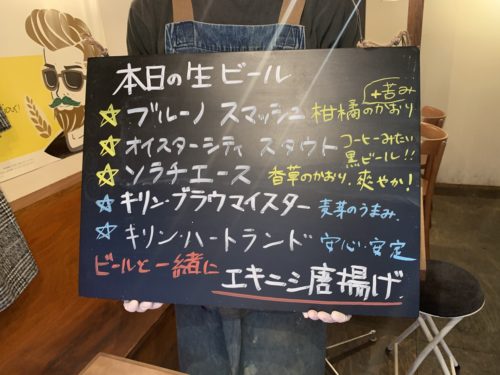 本日の生ビール
☆ ブルーノ スマッシュ 柑橘のかおり +苦み
☆ オイスターシティ スタウト コーヒーみたい 黒ビール!!
☆ ソラチエース 香草のかおり、爽やか!
☆ キリン・ブラウマイスター 麦芽のうまみ、
☆ キリン・ハートランド 安心・安定
ビールと一緒に エキニシ唐揚げ